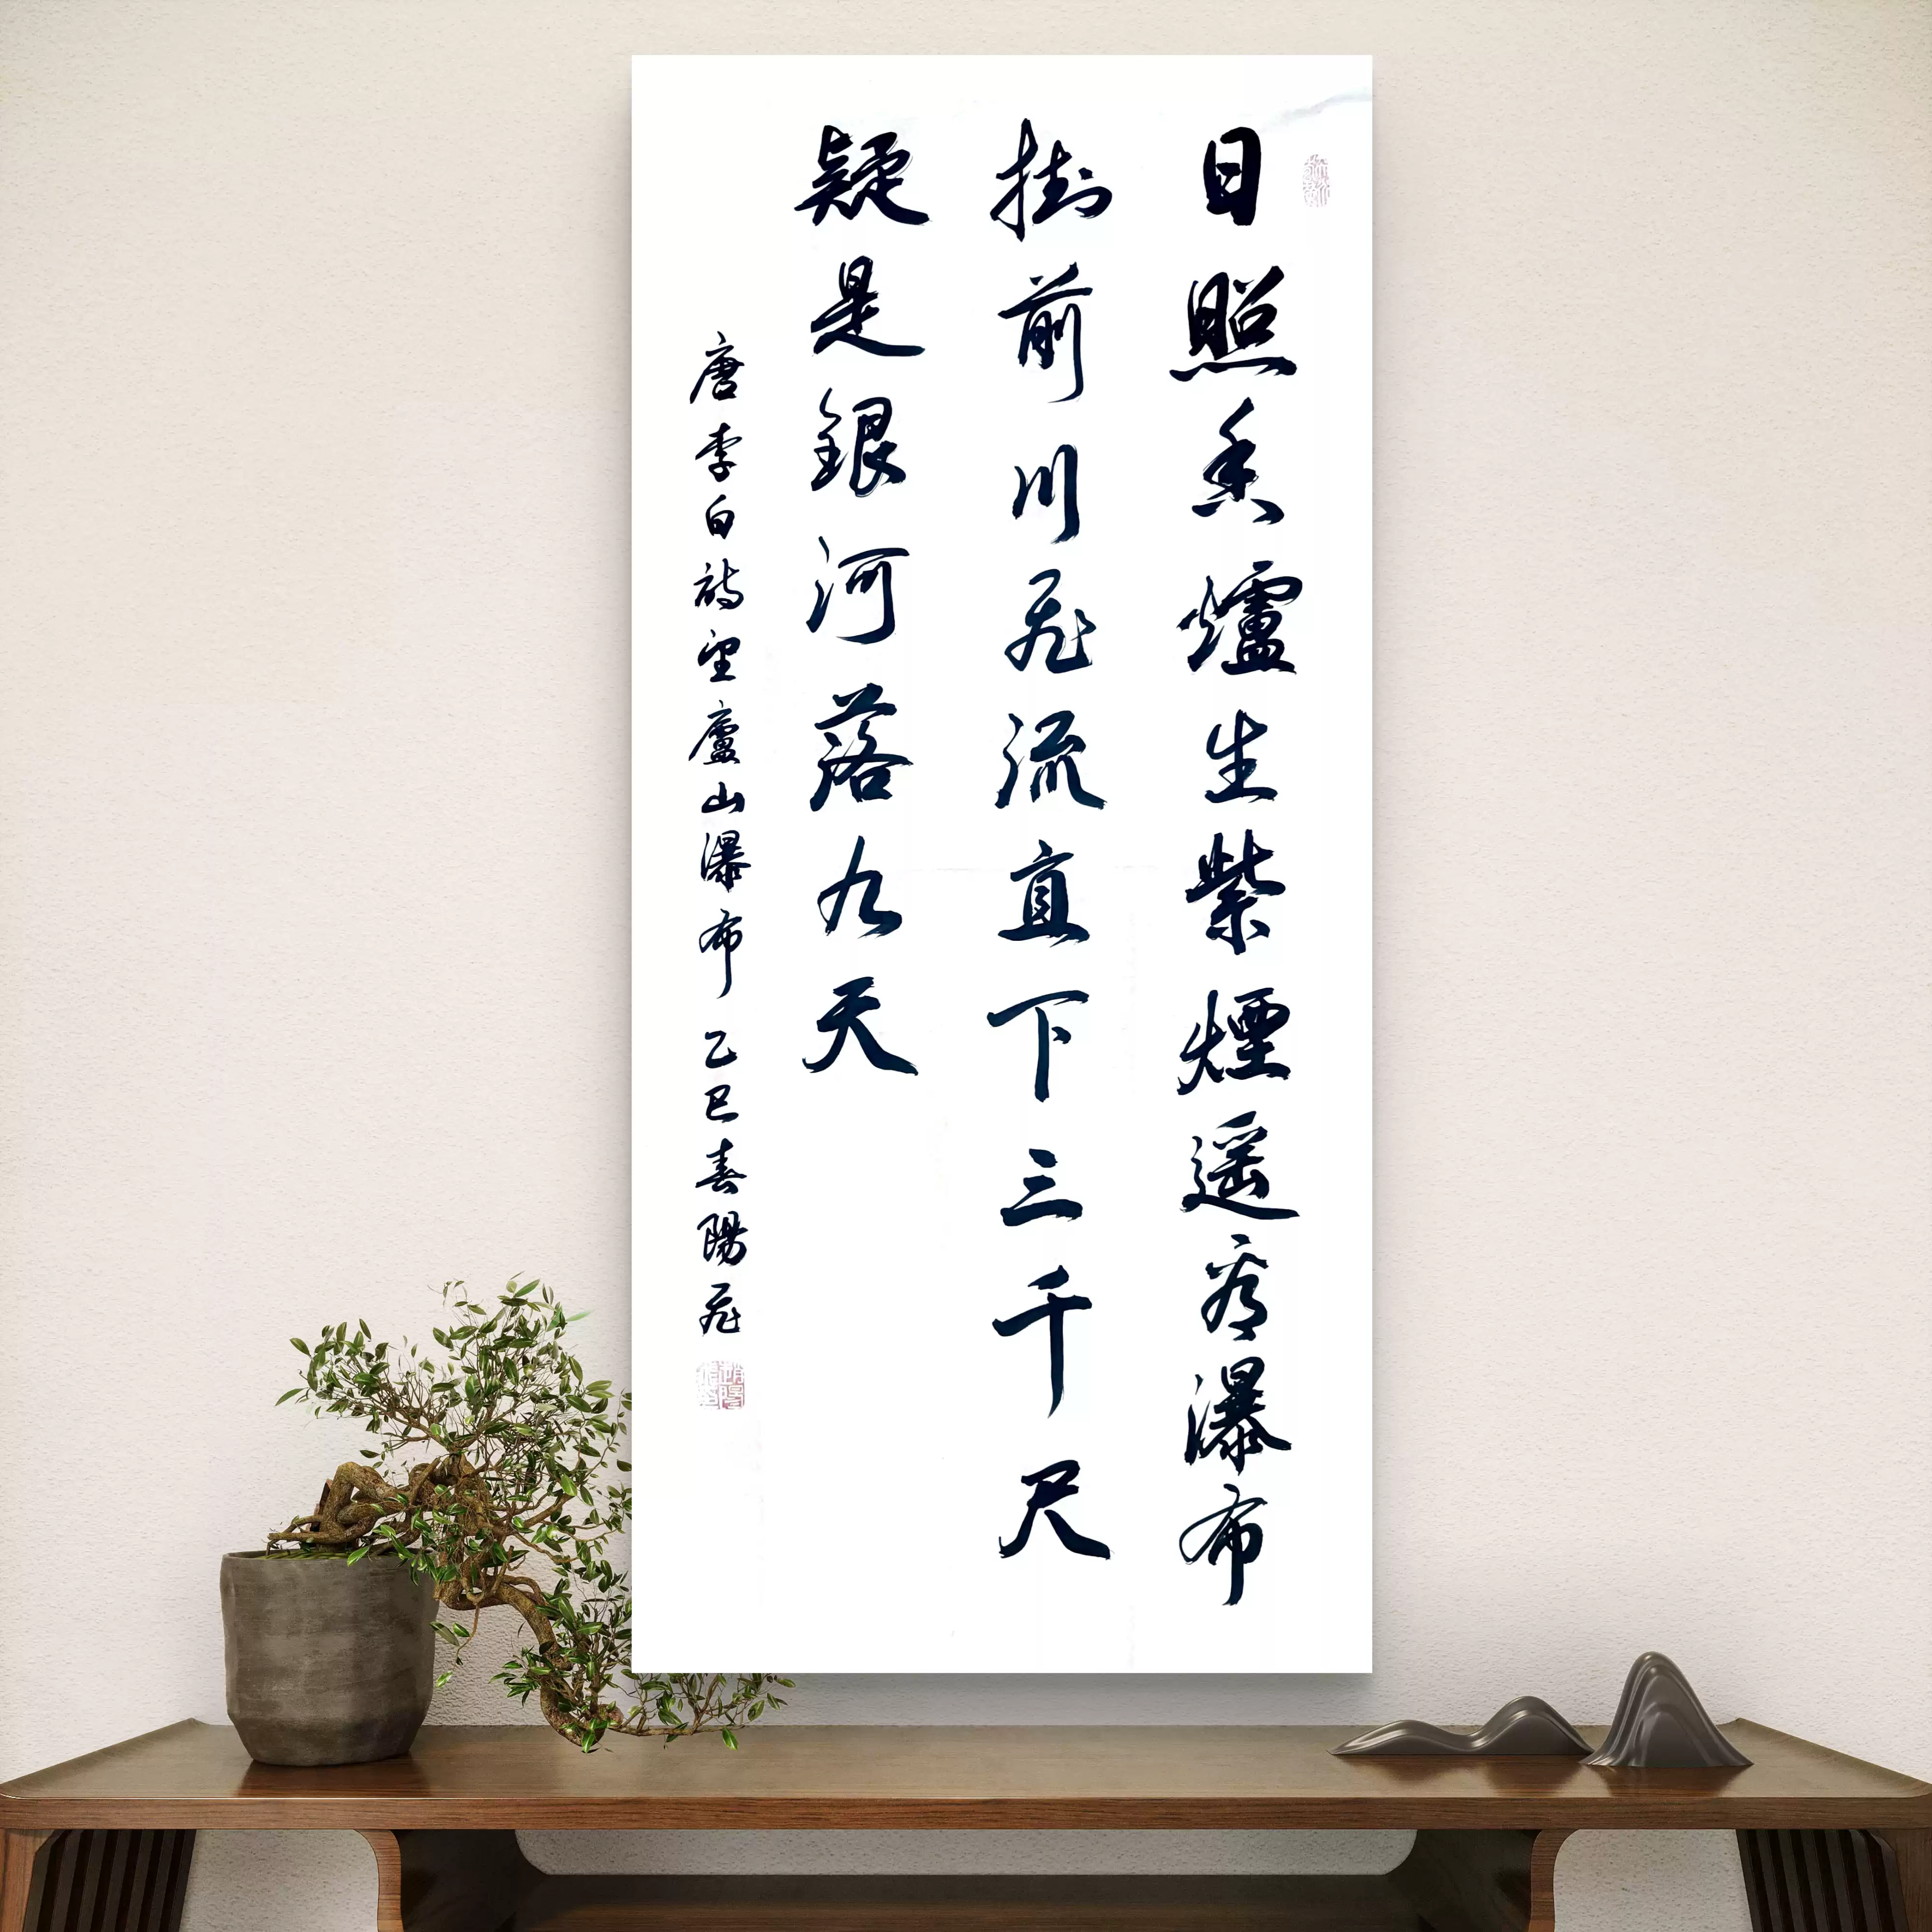 日照香爐生紫煙遥看瀑布
掛前川飛流直下三千尺
疑是銀河落九天
唐李白詩望廬山瀑布 乙巳春陽飛